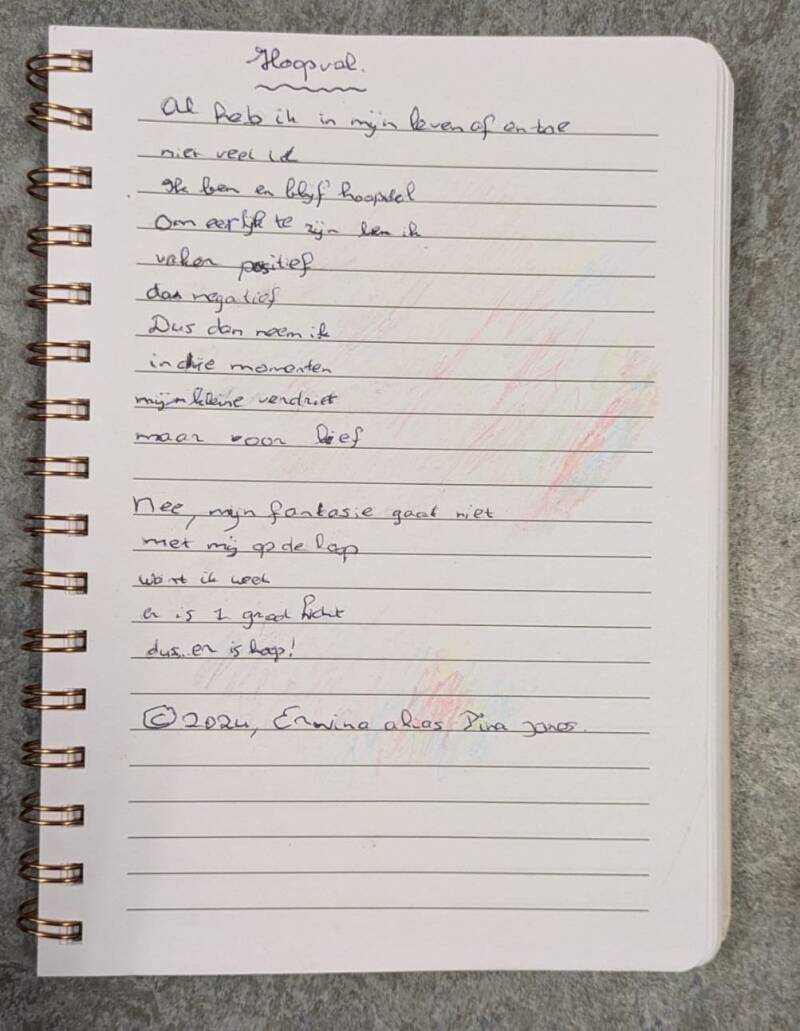 Hoopvol.
Al heb ik in mijn leven af en toe
niet veel id
Ik ben en blijf hoopvol
Om eerlijk te zijn ben ik
vaker positief
dan negatief
Dus dan neem ik
in die momenten
mijn kleine verdriet
maar voor lief
Nee, mijn fantasie gaat niet
met mij op de loop
want ik weet
er is 1 groot licht
dus er is hoop!
©2024, Erwina alias Pina Jones.